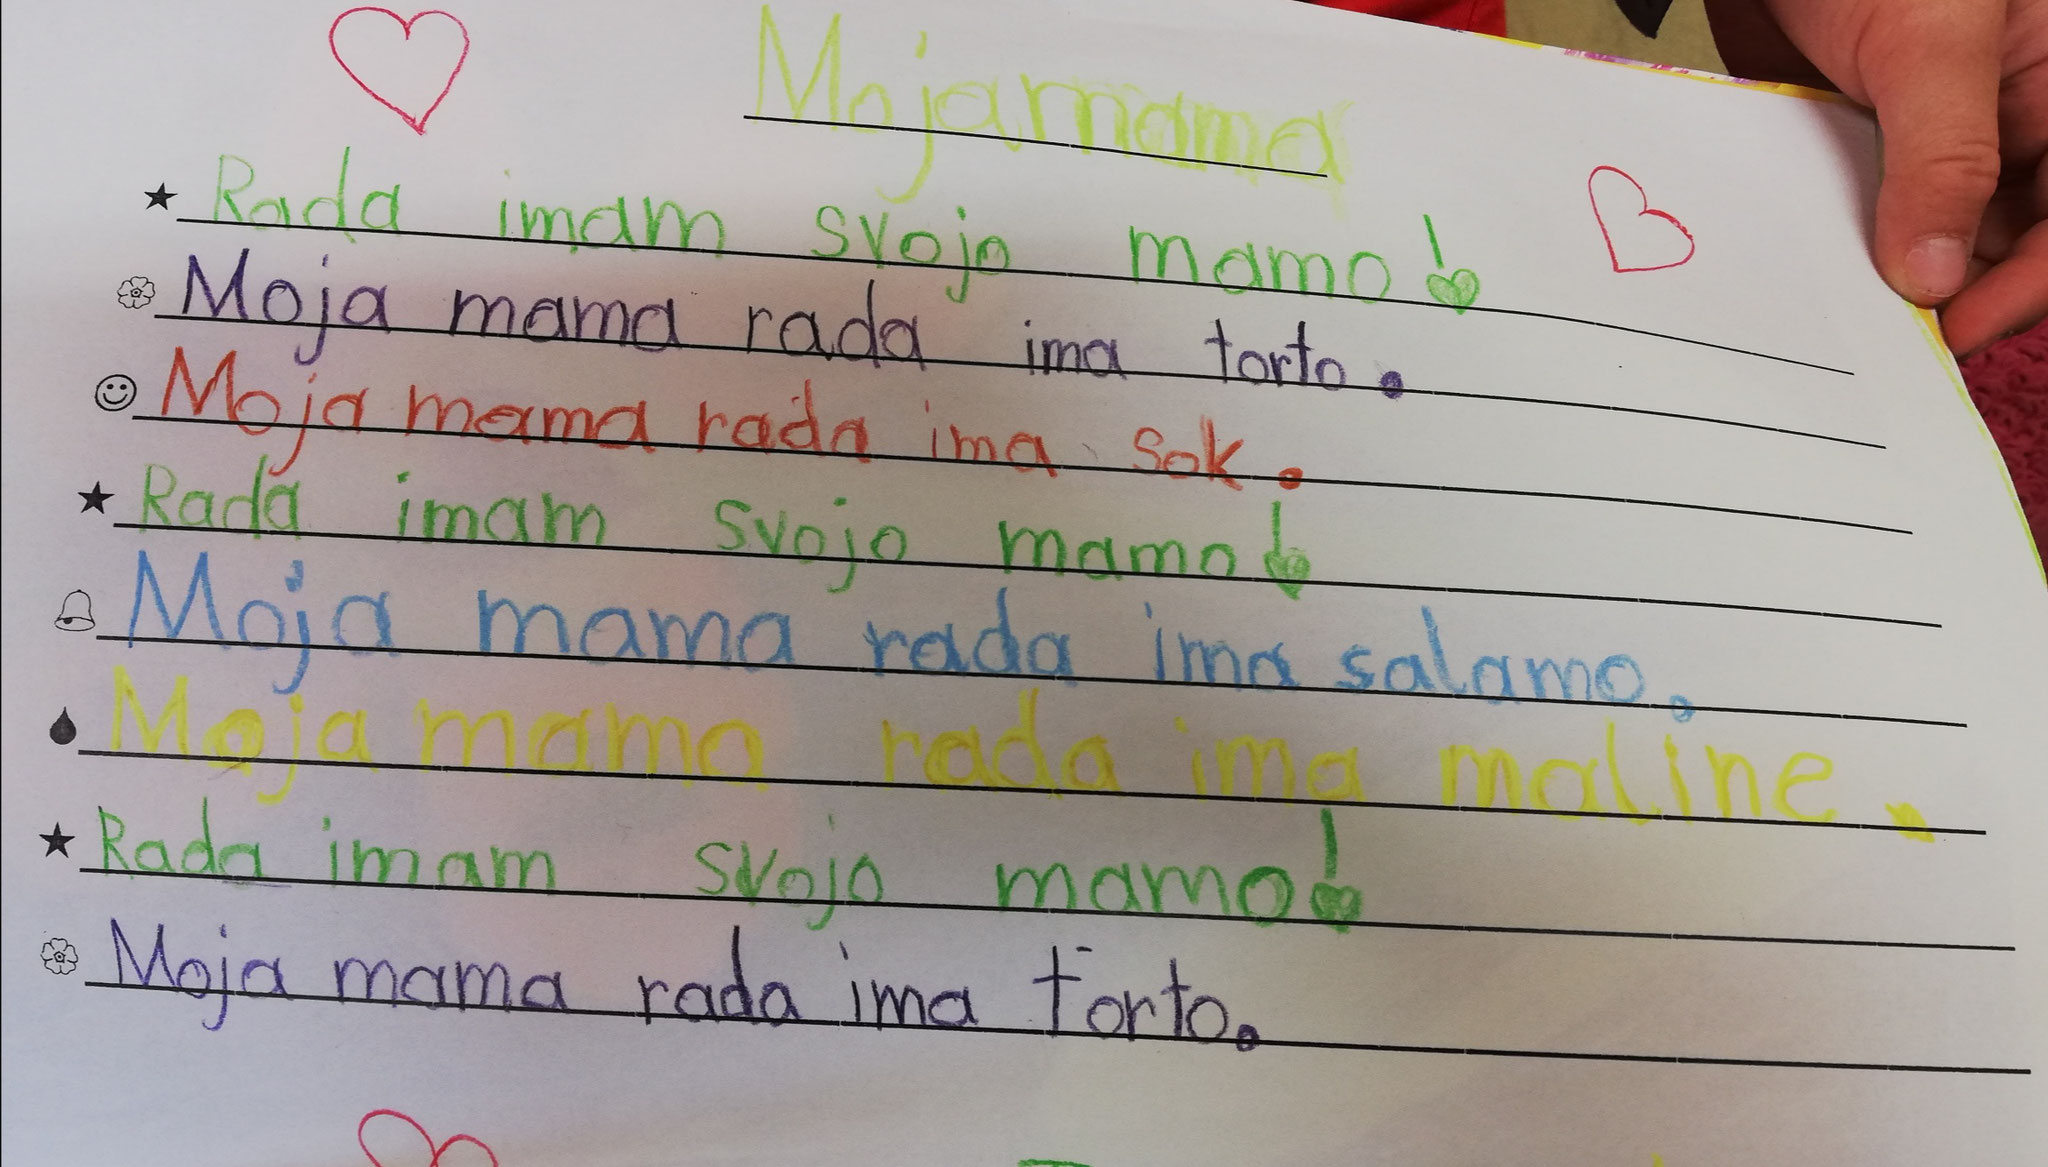 Moja mama
Rada imam svojo mamo!
Moja mama rada ima torto.
Moja mama rada ima sok.
Rada imam svojo mamo!
Moja mama rada ima salamo.
Moja mama rada ima maline.
Rada imam svojo mamo!
Moja mama rada ima torto.